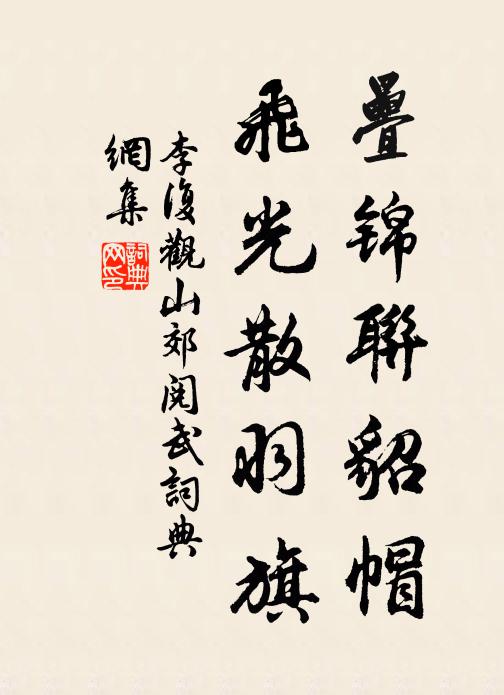 疊錦聯貂帽
飛光散羽旗
李復觀山郊閱武詞典
網集
詞典
网印